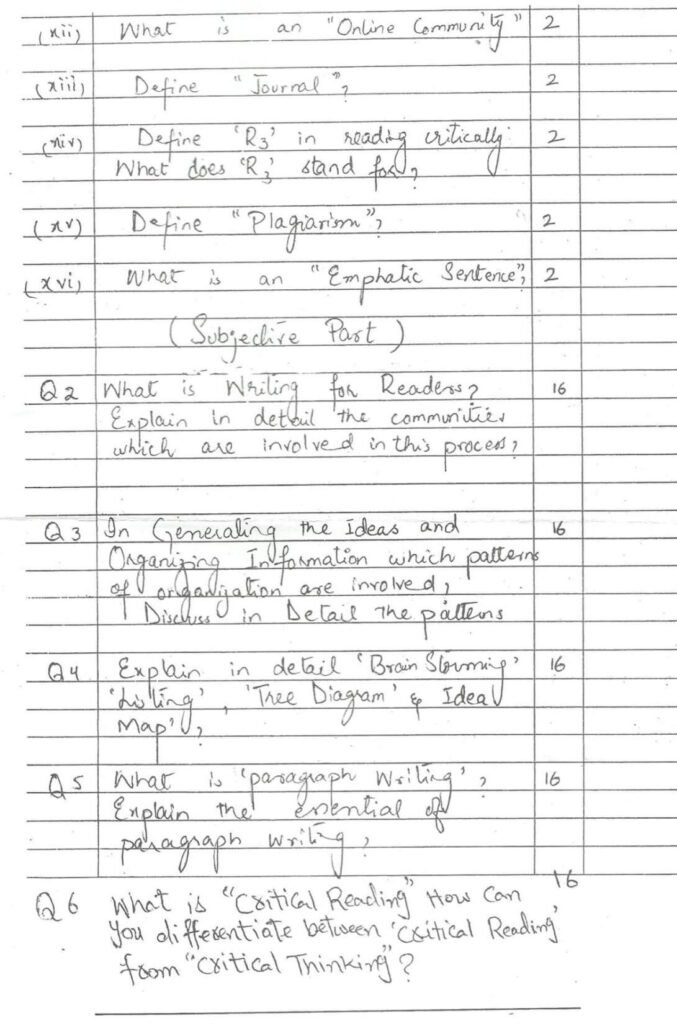 (xii) What is an "Online Community" 2
(xiii) Define "Journal"? 2
(xiv) Define 'R3' in reading critically. 2
What does 'R3' stand for?
(xv) Define "Plagiarism"? 2
(xvi) What is an "Emphatic Sentence"? 2
(Subjective Part)
Q2 What is Writing for Readers? 16
Explain in detail the communities
which are involved in this process?
Q3 In Generating the Ideas and 16
Organizing Information which patterns
of organization are involved?
Discuss in Detail the patterns
Q4 Explain in detail 'Brain Storming' 16
'Listing', 'Tree Diagram' & Ideal
Map'?
Q5 What is 'paragraph Writing'? 16
Explain the essential of
paragraph writing?
16
Q6 What is "Critical Reading" How Can
you differentiate between 'Critical Reading'
from "Critical Thinking"?